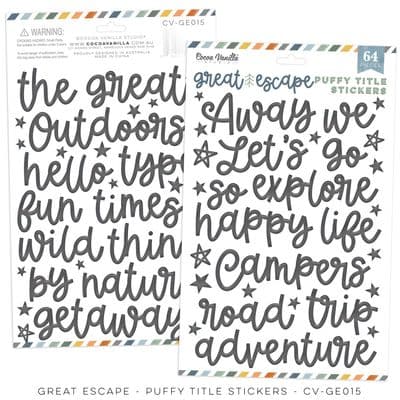 WARNING:
CHOKING HAZARD. Small parts.
COCOA VANILLA STUDIO®
WWW.COCOAVANILLA.COM.AU
PROUDLY DESIGNED IN AUSTRALIA
MADE IN CHINA
CV-GE015
the great
Outdoors
hello
fun times
wild
by
getaway
Cocoa Vanilla
64
great escape
PUFFY TITLE
STICKERS
Away we
Let's go
so explore
happy life
Campers
road trip
adventure
GREAT ESCAPE - PUFFY TITLE STICKERS - CV-GE015